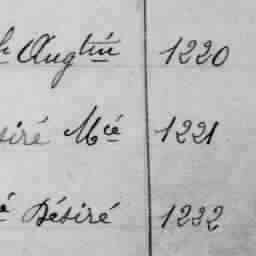 h Aug^tin 1220
siré M^cé 1221
é Désiré 1232